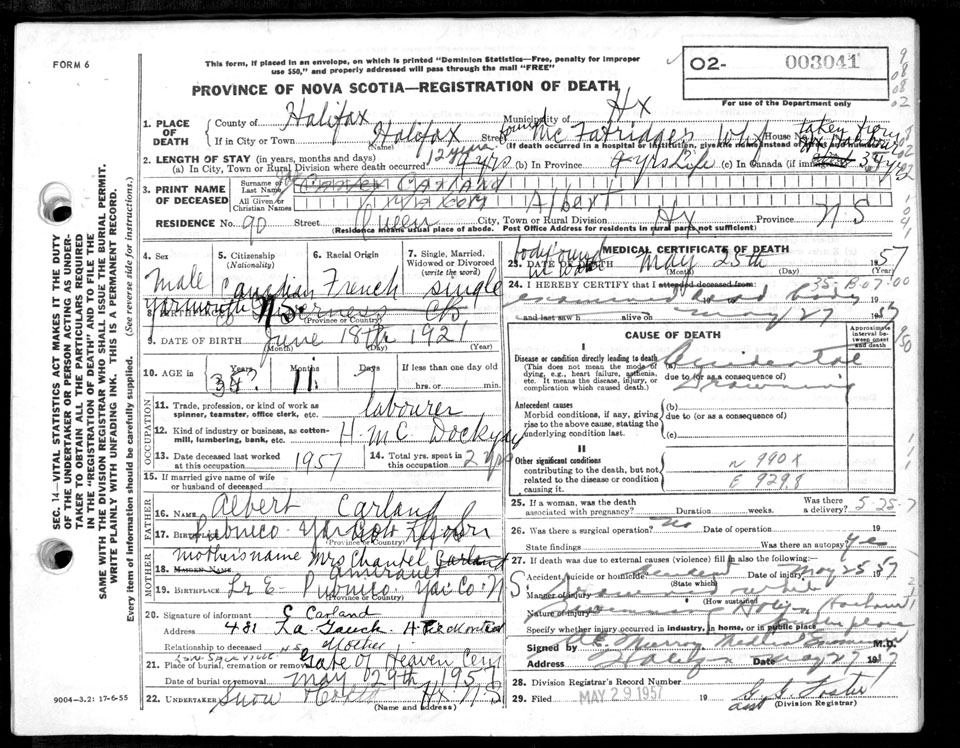 FORM 6
This form, if placed in an envelope, on which is printed "Dominion Statistics—Free, penalty for improper
use $50," and properly addressed will pass through the mail "FREE"
PROVINCE OF NOVA SCOTIA—REGISTRATION OF DEATH
O2- 003041
For use of the Department only
1. PLACE OF DEATH
County of Halifax Municipality of Hx
If in City or Town Halifax Street found McFatridges Whf House No.
(Name) (If death occurred in a hospital or institution, give the name instead of
2. LENGTH OF STAY (in years, months and days) 12 years
(a) In City, Town or Rural Division where death occurred 9 yrs (b) In Province 9 yrs Life (c) In Canada (if
3. PRINT NAME OF DECEASED
Surname or Last Name Carland
All Given or Christian Names Albert
RESIDENCE No. 90 Street Queen City, Town or Rural Division Hx Province N S
(Residence means usual place of abode. Post Office Address for residents in rural parts not sufficient)
4. Sex Male
5. Citizenship (Nationality) Canadian
6. Racial Origin French
7. Single, Married, Widowed or Divorced (write the word) single
8. Yarmouth Co NS CB
(Province or Country)
9. DATE OF BIRTH June 18th 1921
(Month) (Day) (Year)
10. AGE in Years Months 11 Days If less than one day
hrs. or min.
OCCUPATION
11. Trade, profession, or kind of work as spinner, teamster, office clerk, etc. labourer
12. Kind of industry or business, as cotton-mill, lumbering, bank, etc. H.M.C. Dockyard
13. Date deceased last worked at this occupation 1957
14. Total yrs. spent in this occupation 2 yrs
15. If married give name of wife or husband of deceased
FATHER
16. NAME Albert Carland
17. BIRTHPLACE Pubnico
(Province or Country)
MOTHER
mothers name Mrs Chantel Carland
18. MAIDEN NAME Amirault
19. BIRTHPLACE Lr E- Pubnico Yar. Co. N S
(Province or Country)
20. Signature of informant C Carland
Address 481 Montreal
Relationship to deceased Mother
21. Place of burial, cremation or removal Gate of Heaven Cem
Date of burial or removal May 29th 195
22. UNDERTAKER Snow Hx. N S
(Name and address)
MEDICAL CERTIFICATE OF DEATH
body found in water
23. DATE OF DEATH May 25th 1957
(Month) (Day) (Year)
24. I HEREBY CERTIFY that I attended deceased from: 35-B-07-00
examined dead body
and last saw h alive on May 27 1957
CAUSE OF DEATH
Approximate interval between onset and death
I
Disease or condition directly leading to death
(This does not mean the mode of dying, e.g., heart failure, asthenia, etc. It means the disease, injury, or complication which caused death.)
(a) Accidental
due to (or as a consequence of) Drowning
Antecedent causes
Morbid conditions, if any, giving rise to the above cause, stating the underlying condition last.
(b)
due to (or as a consequence of)
(c)
II
Other significant conditions
contributing to the death, but not related to the disease or condition causing it.
N 990 X
E 929.8
25. If a woman, was the death associated with pregnancy? Duration weeks. Was there a delivery? 5-25-7
26. Was there a surgical operation? no Date of operation 19
State findings Was there an autopsy? Yes
27. If death was due to external causes (violence) fill in also the following:
Accident, suicide or homicide? Accident Date of injury May 25 57
(State which)
Manner of injury
(How sustained)
Nature of injury Drowning Harbour
Specify whether injury occurred in industry, in home, or in public place
Signed by Murray Medical Examiner M.D.
Address Halifax Date May 27 1957
28. Division Registrar's Record Number
29. Filed MAY 29 1957 19
asst (Division Registrar)
SEC. 14—VITAL STATISTICS ACT MAKES IT THE DUTY
OF THE UNDERTAKER OR PERSON ACTING AS UNDER-
TAKER TO OBTAIN ALL THE PARTICULARS REQUIRED
IN THE "REGISTRATION OF DEATH" AND TO FILE THE
SAME WITH THE DIVISION REGISTRAR WHO SHALL ISSUE THE BURIAL PERMIT.
WRITE PLAINLY WITH UNFADING INK. THIS IS A PERMANENT RECORD.
Every item of information should be carefully supplied. (See reverse side for instructions.)
9004—3.2: 17-6-55